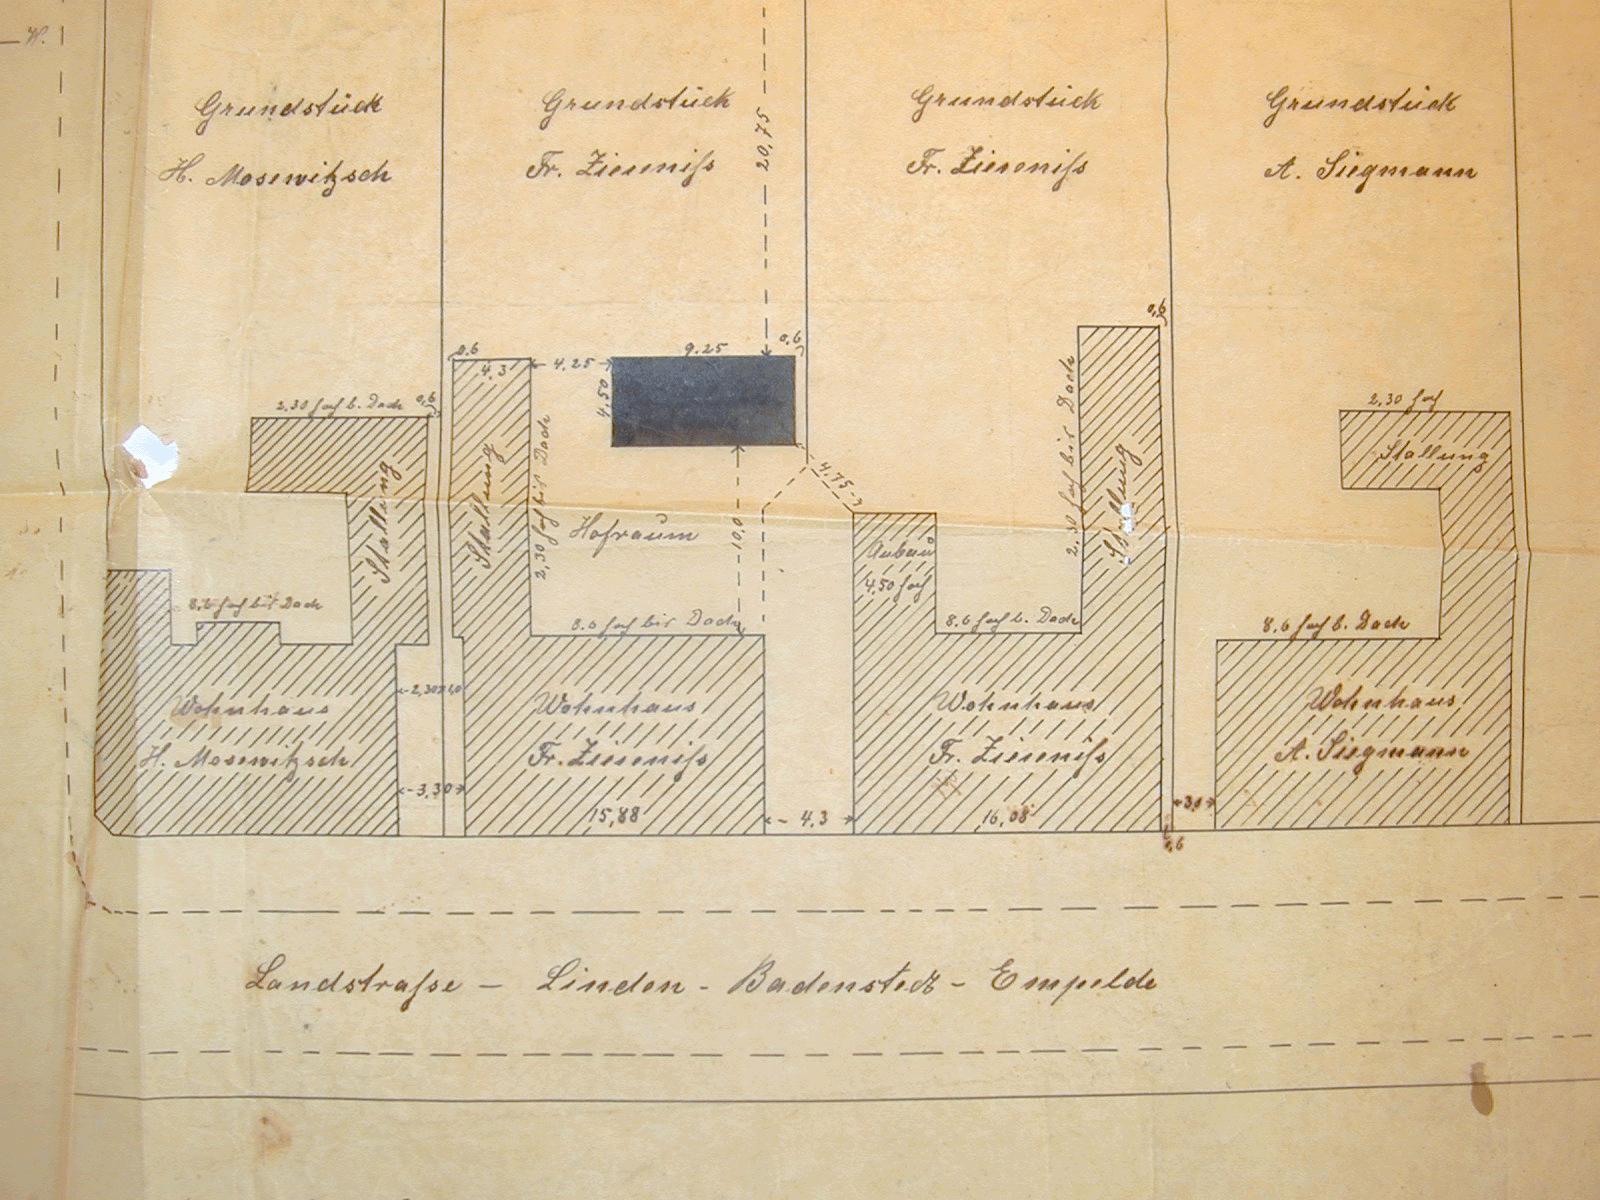 W.
Grundstück
H. Mosewitzsch
Grundstück
Fr. Zieseniſs
20,75
Grundstück
Fr. Zieseniſs
Grundstück
A. Siegmann
0,6
0,6
4,3
4,25
9,25
0,6
4,50
2,30 hoch b. Dach
0,6
2,30 hoch
Stallung
Stallung
Stallung
2,30 hoch bis Dach
Hofraum
10,0
4,75
Anbau
4,50 hoch
2,30 hoch bis Dach
Stallung
8,6 hoch bis Dach
8.6 hoch bis Dach
8.6 hoch b. Dach
8,6 hoch b. Dach
2,30
Wohnhaus
H. Mosewitzsch
Wohnhaus
Fr. Zieseniſs
Wohnhaus
Fr. Zieseniſs
Wohnhaus
A. Siegmann
3,30
15,88
4.3
16,08
3,0
0,6
Landstraſse – Linden - Badenstedt - Empelde